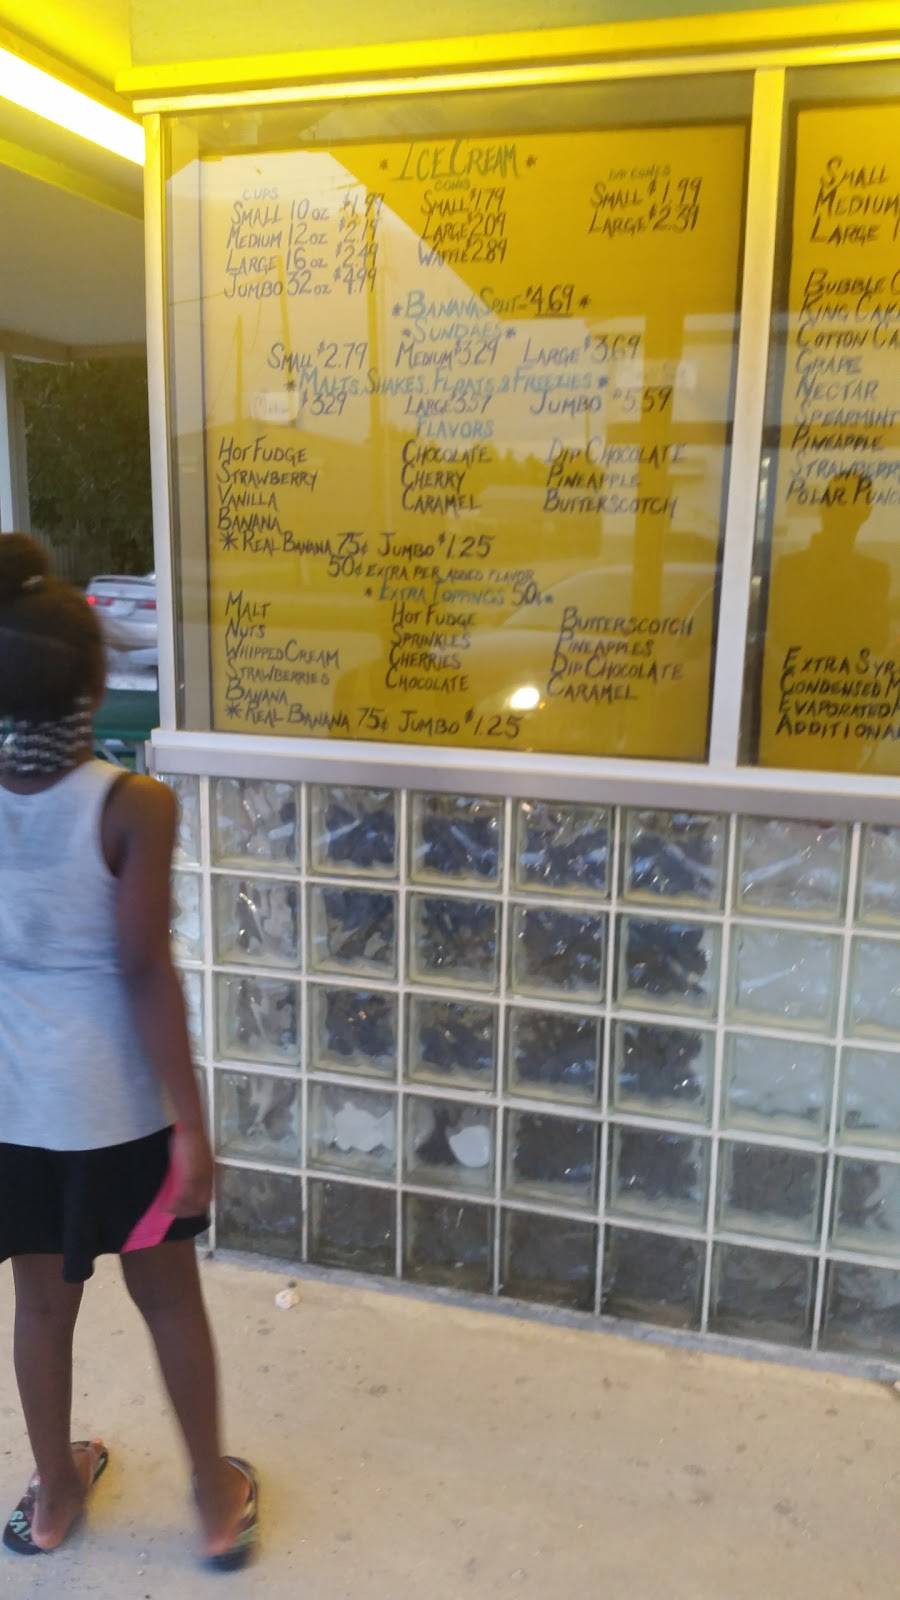 * ICE CREAM *
CUPS
SMALL 10 oz $1.99
MEDIUM 12 oz $2.19
LARGE 16 oz $2.49
JUMBO 32 oz $4.99
CONES
SMALL $1.79
LARGE $2.09
WAFFLE $2.89
DIP CONES
SMALL $1.99
LARGE $2.39
* BANANA SPLIT - $4.69 *
* SUNDAES *
SMALL $2.79 MEDIUM $3.29 LARGE $3.69
* MALTS, SHAKES, FLOATS, & FREEZIES *
$3.29 LARGE $3.57 JUMBO $5.59
FLAVORS
HOT FUDGE CHOCOLATE DIP CHOCOLATE
STRAWBERRY CHERRY PINEAPPLE
VANILLA CARAMEL BUTTERSCOTCH
BANANA
* REAL BANANA 75¢ JUMBO $1.25
50¢ EXTRA PER ADDED FLAVOR
* EXTRA TOPPINGS 50¢ *
MALT HOT FUDGE BUTTERSCOTCH
NUTS SPRINKLES PINEAPPLES
WHIPPED CREAM CHERRIES DIP CHOCOLATE
STRAWBERRIES CHOCOLATE CARAMEL
BANANA
* REAL BANANA 75¢ JUMBO $1.25
SMALL
MEDIUM
LARGE 1
BUBBLE
KING CAK
COTTON CA
GRAPE
NECTAR
SPEARMINT
PINEAPPLE
STRAWBERR
POLAR PUNC
EXTRA SYR
CONDENSED M
EVAPORATED
ADDITIONA